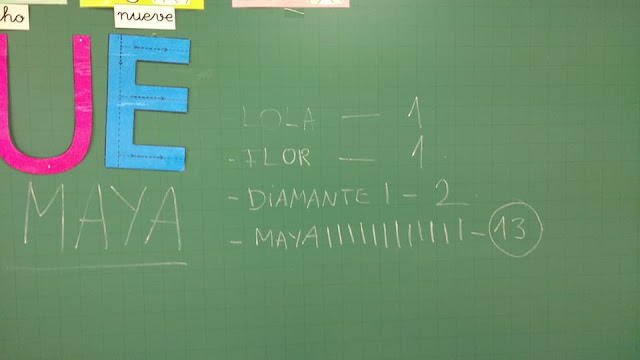 ho nueve
UE
LOLA — 1
- FLOR — 1
- DIAMANTE | - 2
- MAYA |||||||||||| - 13
MAYA